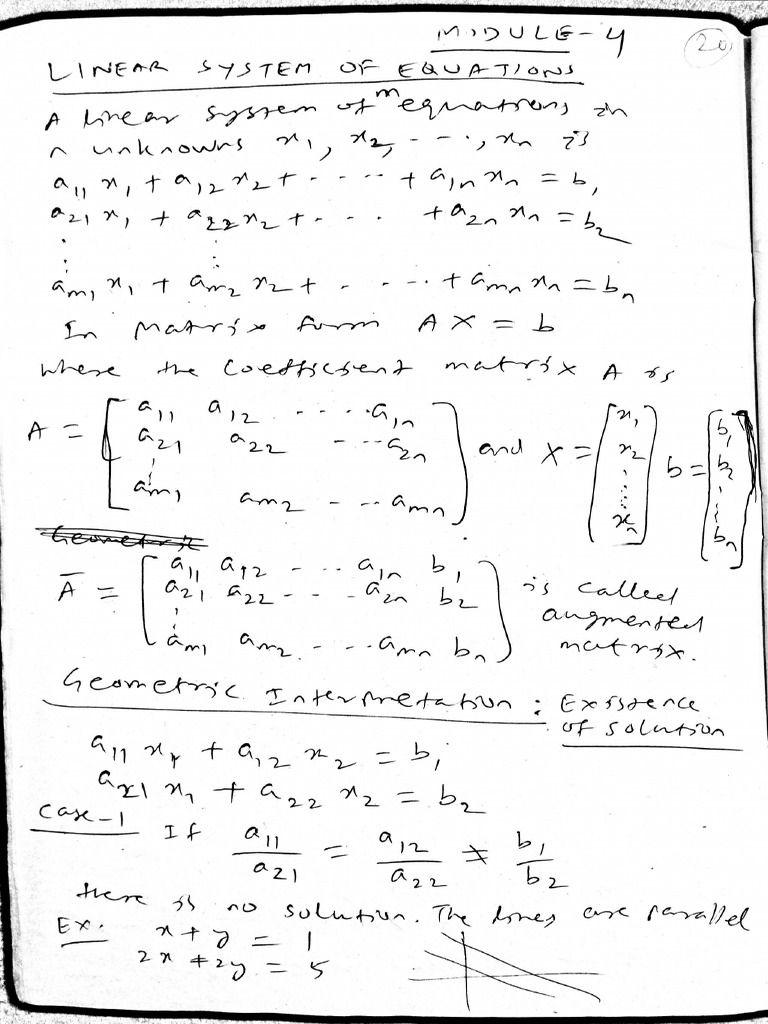 MODULE-4
20
LINEAR SYSTEM OF EQUATIONS
A linear system of m equations in
n unknowns x₁, x₂, - - -, xₙ is
a₁₁ x₁ + a₁₂ x₂ + - - - - + a₁ₙ xₙ = b₁
a₂₁ x₁ + a₂₂ x₂ + - - - + a₂ₙ xₙ = b₂
⋮ ⋮
aₘ₁ x₁ + aₘ₂ x₂ + - - - - + aₘₙ xₙ = bₙ
In Matrix form AX = b
where the coefficient matrix A is
A = [a₁₁ a₁₂ - - - - a₁ₙ
a₂₁ a₂₂ - - - a₂ₙ
⋮
aₘ₁ aₘ₂ - - - aₘₙ] and X = [x₁ x₂ ⋮ xₙ] b = [b₁ b₂ ⋮ bₙ]
Geometric
Ā = [a₁₁ a₁₂ - - - - a₁ₙ b₁
a₂₁ a₂₂ - - - a₂ₙ b₂
⋮
aₘ₁ aₘ₂ - - - - aₘₙ bₙ] is called
augmented
matrix.
Geometric Interpretation : Existence
of solution
a₁₁ x₁ + a₁₂ x₂ = b₁
a₂₁ x₁ + a₂₂ x₂ = b₂
Case-1 If a₁₁/a₂₁ = a₁₂/a₂₂ ≠ b₁/b₂
there is no solution. The lines are parallel
Ex. x + y = 1
2x + 2y = 5